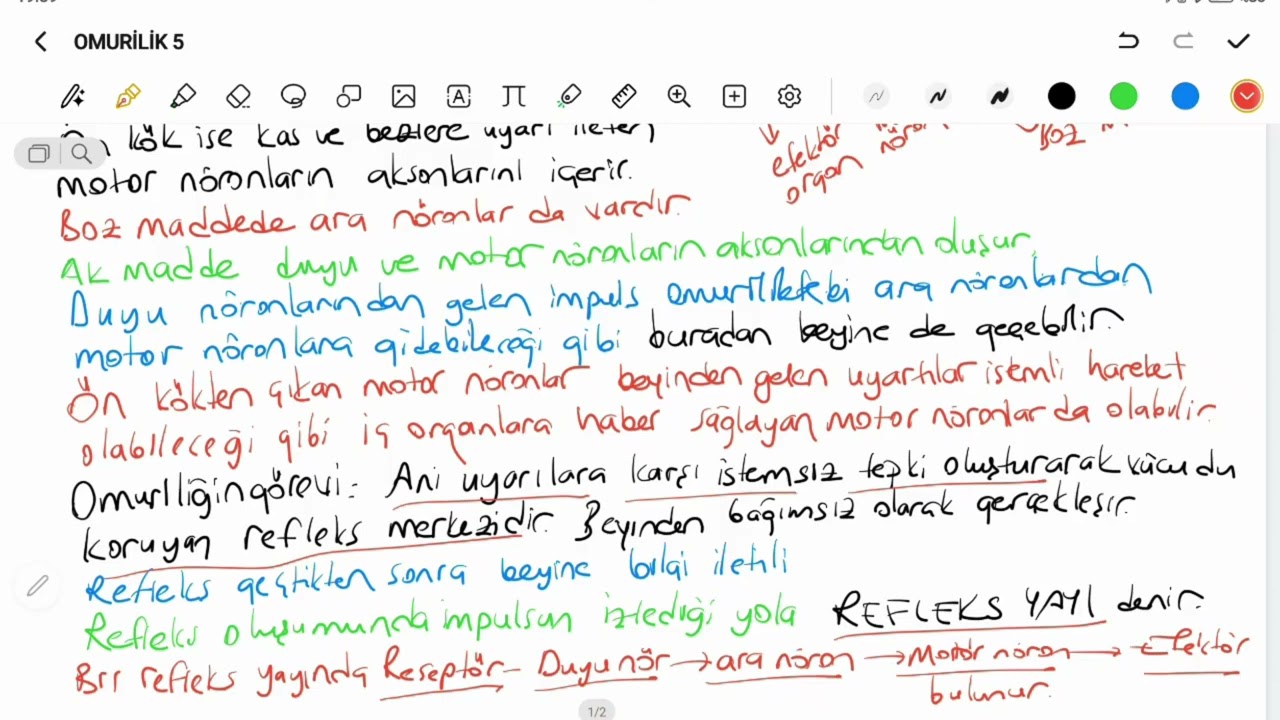 OMURİLİK 5
kök ise kas ve bezlere uyarı ileten
efektör
organ
Boz
motor nöronların aksonlarını içerir.
Boz maddede ara nöronlar da vardır.
Ak madde duyu ve motor nöronların aksonlarından oluşur.
Duyu nöronlarından gelen impuls omurilikteki ara nöronlardan
motor nöronlara gidebileceği gibi buradan beyine de geçebilir.
Ön kökten çıkan motor nöronlar beyinden gelen uyartılar istemli hareket
olabileceği gibi iç organlara haber sağlayan motor nöronlar da olabilir.
Omuriliğin görevi: Ani uyarılara karşı istemsiz tepki oluşturarak vücudu
koruyan refleks merkezidir. Beyinden bağımsız olarak gerçekleşir.
Refleks geçtikten sonra beyine bilgi iletili
Refleks oluşumunda impulsun izlediği yola REFLEKS YAYI denir.
Bir refleks yayında Reseptör - Duyu nör → ara nöron → Motor nöron → Efektör
bulunur.
1/2